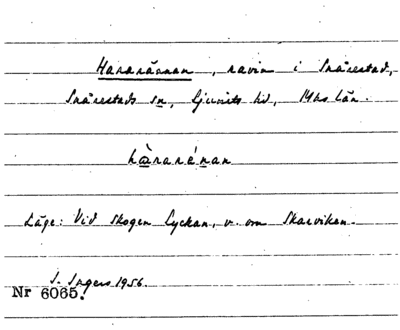 Hararännan, ravin i Snårestad,
Snårestads sn, Ljunits hd, Mhs län.
Läge: Vid skogen Lyckan, v. om Skarviken.
S. Ingers 1956.
Nr 6065.